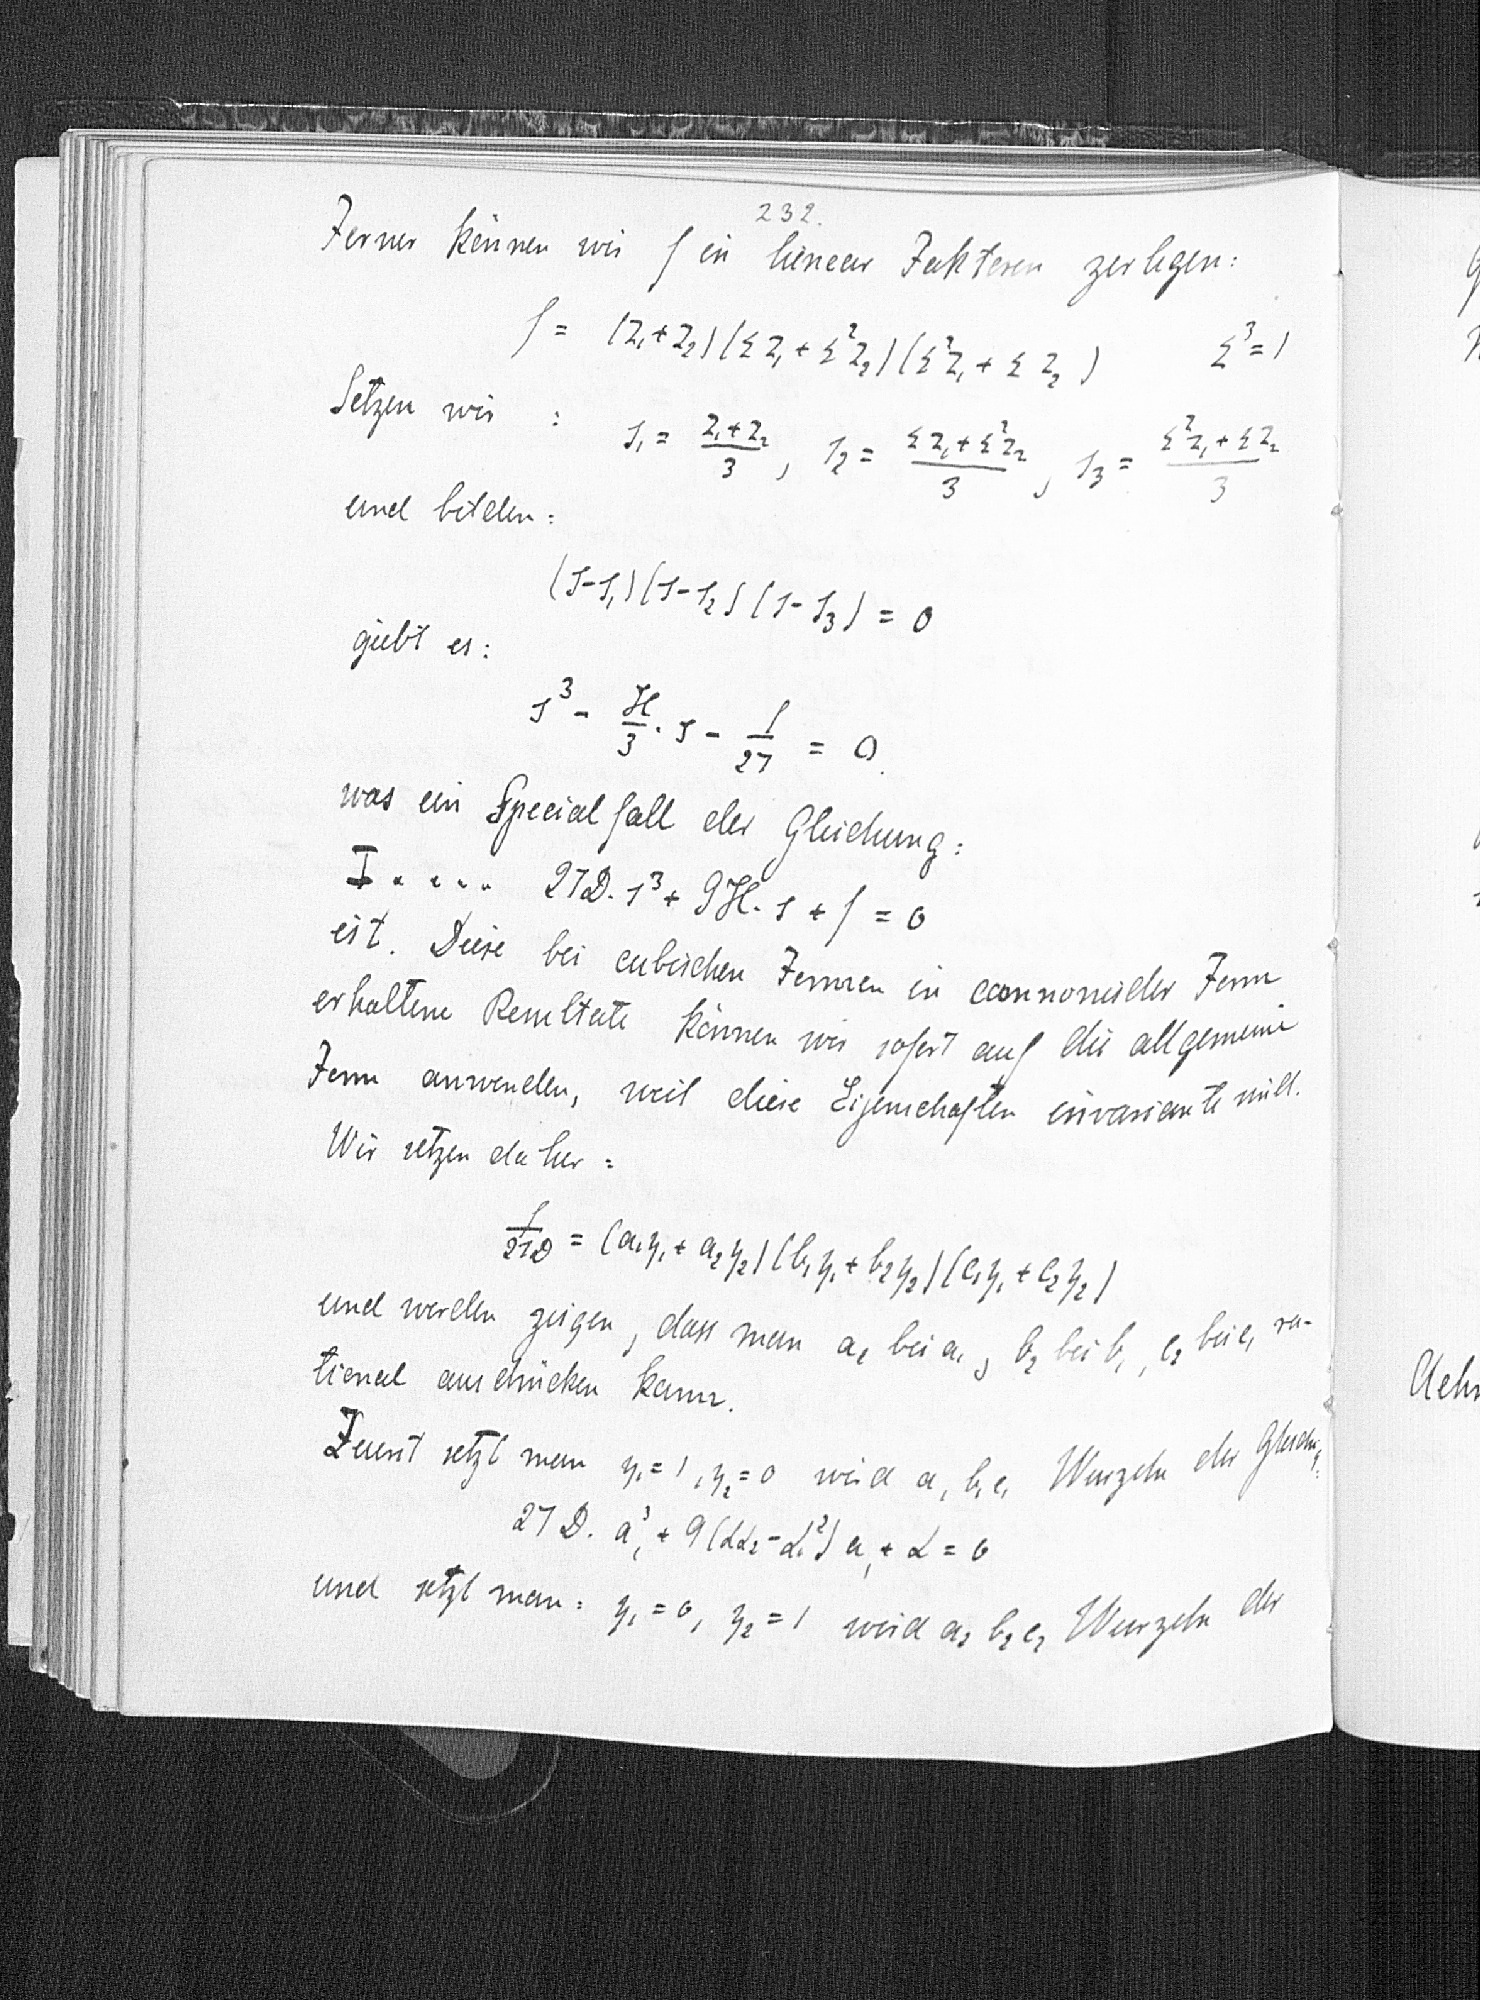 232.
Ferner können wir f in linear Faktoren zerlegen:
f = (z₁+z₂)(Σz₁+Σ²z₂)(Σ²z₁+Σz₂)   Σ³=1
Setzen wir :
s₁ = (z₁+z₂)/3, s₂ = (Σz₁+Σ²z₂)/3, s₃ = (Σ²z₁+Σz₂)/3
und bilden:
(s-s₁)(s-s₂)(s-s₃) = 0
giebt es:
s³ - H/3 · s - f/27 = 0.
was ein Specialfall der Gleichung:
I . . . . 27D. s³ + 9H. s + f = 0
ist. Diese bei cubischen Formen in cannonischer Form
erhaltene Resultate können wir sofort auf die allgemeine
Form anwenden, weil diese Eigenschaften invariante sind.
Wir setzen daher:
f/27D = (a₁y₁+a₂y₂)(b₁y₁+b₂y₂)(c₁y₁+c₂y₂)
und werden zeigen, dass man a₂ bei a₁, b₂ bei b₁, c₂ bei c₁ ra-
tional ausdrücken kann.
Zuerst setzt man y₁=1, y₂=0 wird a₁ b₁ c₁ Wurzeln der Gleichg:
27D. a₁³ + 9(αα₂-α₁²)a₁ + α = 0
und setzt man: y₁=0, y₂=1 wird a₂ b₂ c₂ Wurzeln der